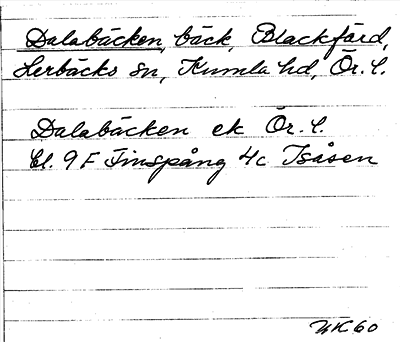 Dalabäcken, bäck, Blackfärd,
Lerbäcks sn, Kumla hd, Ör. l.
Dalabäcken ek Ör. l.
Bl. 9F Finspång 4c Isåsen
60